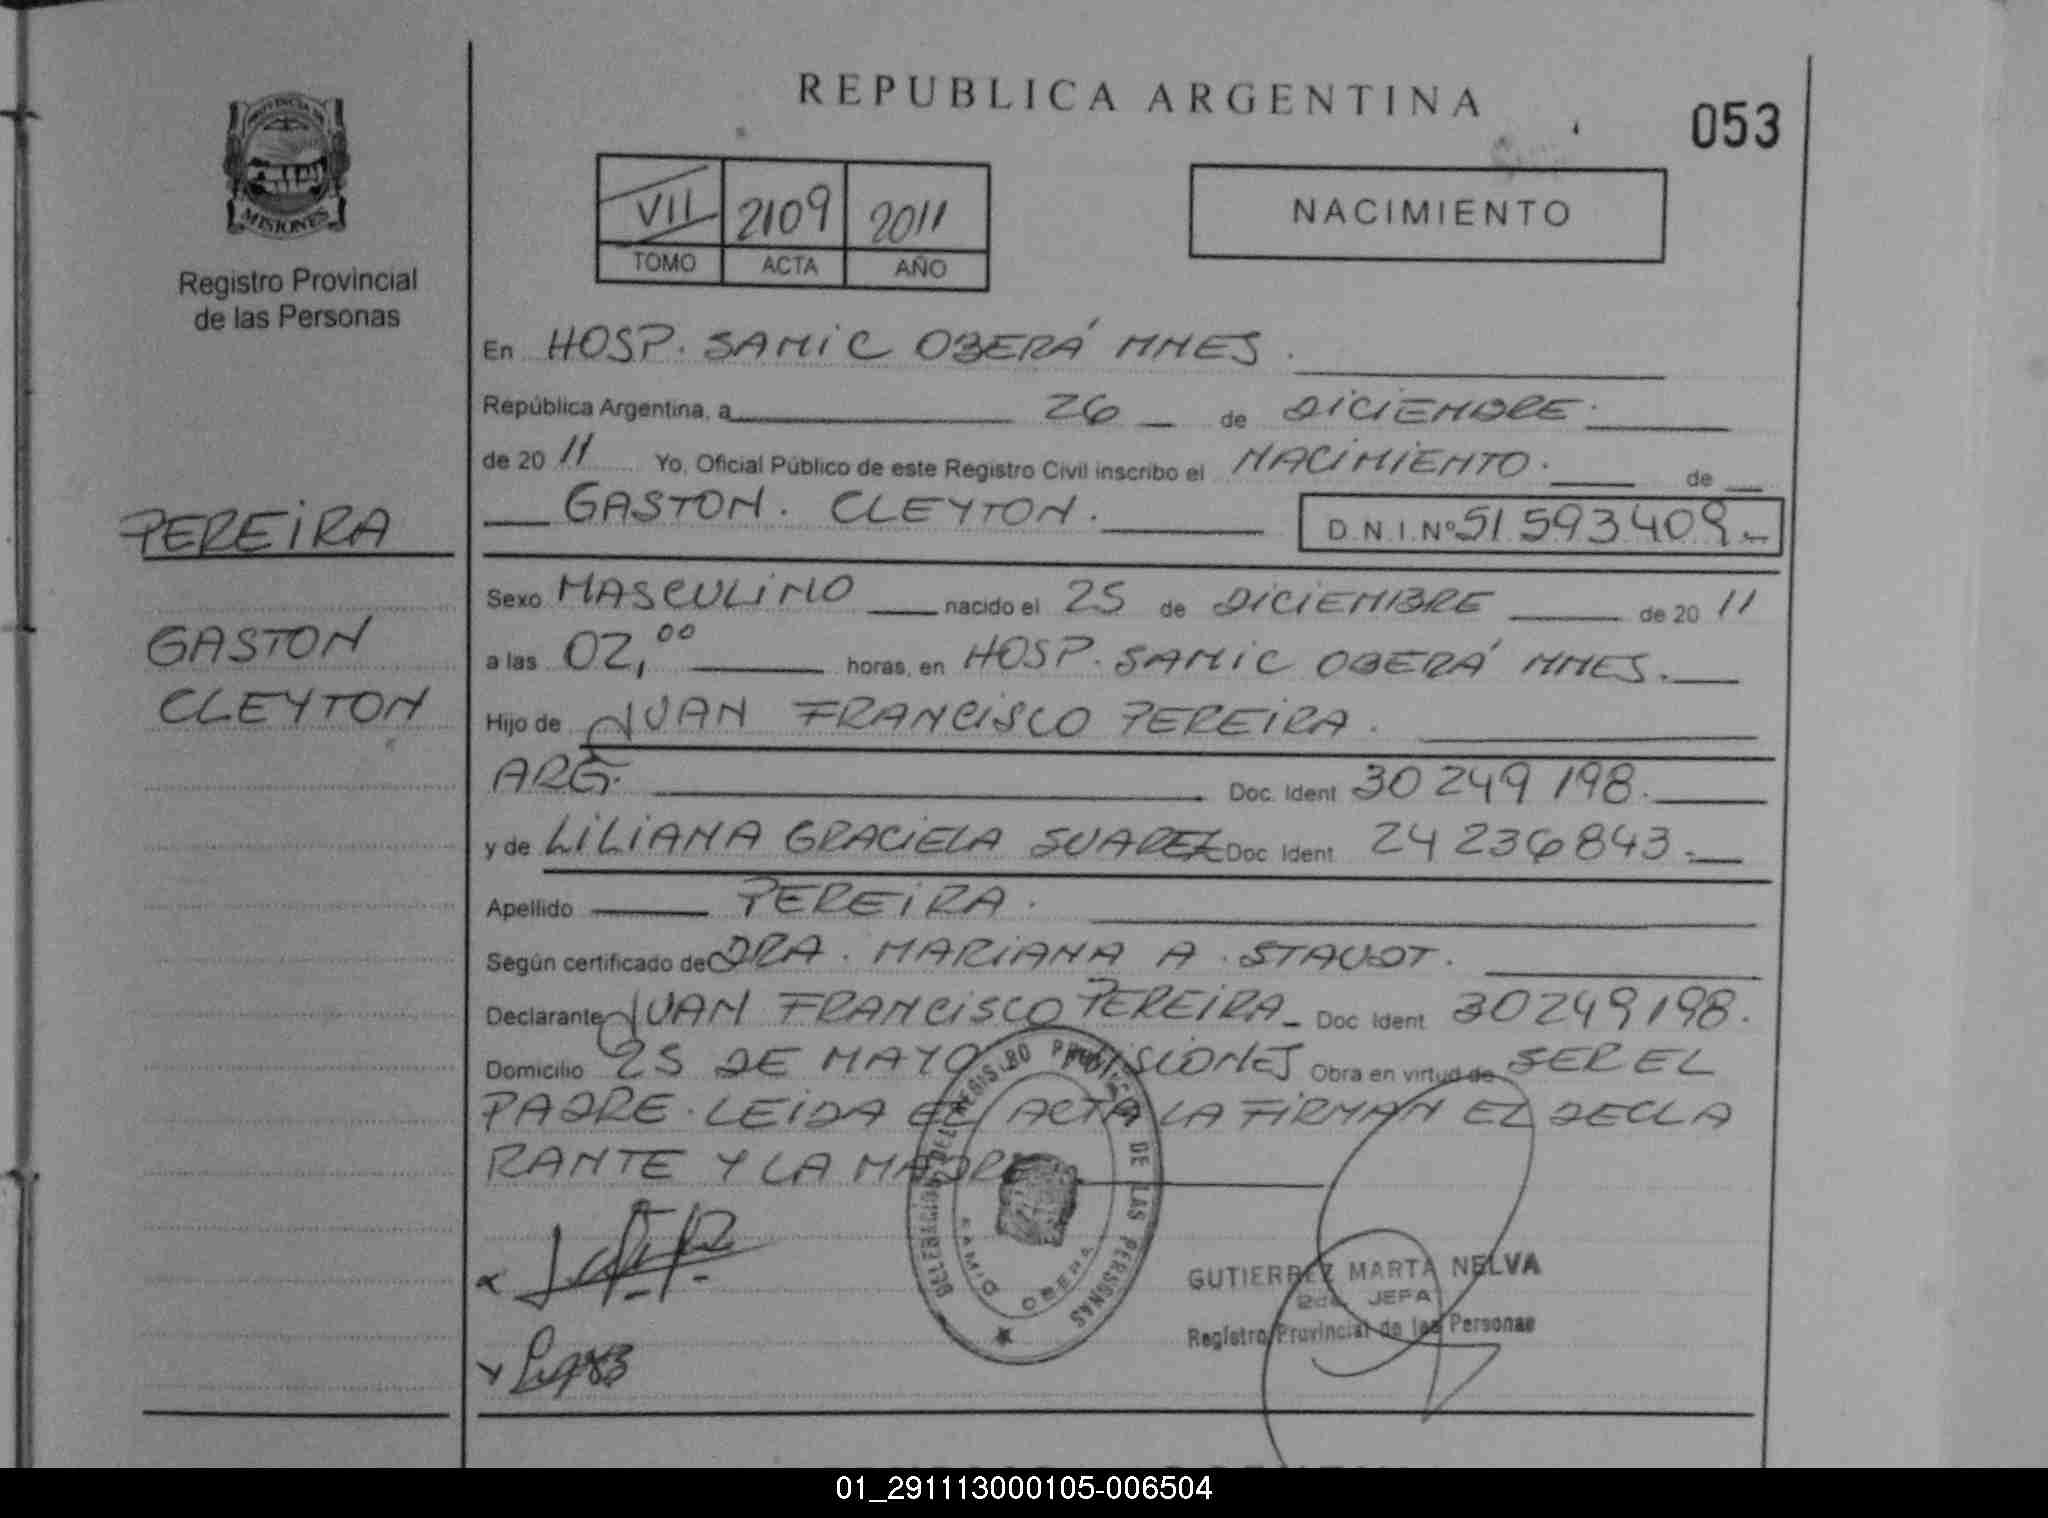 REPUBLICA ARGENTINA
053
PROVINCIA DE
MISIONES
Registro Provincial
de las Personas
VII 2109 2011
TOMO ACTA AÑO
NACIMIENTO
En HOSP. SAMIC OBERÁ MNES.
República Argentina, a 26 de DICIEMBRE.
de 20 11 Yo, Oficial Público de este Registro Civil inscribo el NACIMIENTO. de
GASTON. CLEYTON. D.N.I.Nº 51.593.409.-
PEREIRA
GASTON
CLEYTON
Sexo MASCULINO nacido el 25 de DICIEMBRE de 20 11
a las 02,00 horas, en HOSP. SAMIC OBERÁ MNES.
Hijo de JUAN FRANCISCO PEREIRA.
ARG. Doc. Ident 30 249 198.
y de LILIANA GRACIELA SUAREZ Doc Ident 24 236 843.-
Apellido PEREIRA.
Según certificado de DRA. MARIANA A. STAUDT.
Declarante JUAN FRANCISCO PEREIRA_ Doc Ident 30249198.
Domicilio 25 DE MAYO MISIONES Obra en virtud de SER EL
PADRE. LEIDA EL ACTA LA FIRMAN EL DECLA
RANTE Y LA MADRE
DELEGACION DEL REGISTRO PROVINCIAL DE LAS PERSONAS
SAMIC OBERA
GUTIERREZ MARTA NELVA
2da. JEFA
Registro Provincial de las Personas
01_291113000105-006504